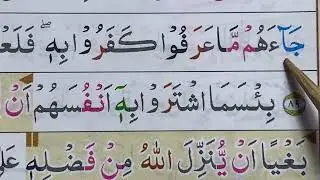 جَآءَهُمْ مَّا عَرَفُوْا كَفَرُوْا بِهٖ ۖ فَلَعْ
﴿٨٩﴾ بِئْسَمَا اشْتَرَوْا بِهٖٓ اَنْفُسَهُمْ اَنْ
بَغْيًا اَنْ يُّنَزِّلَ اللّٰهُ مِنْ فَضْلِهٖ عَلٰى